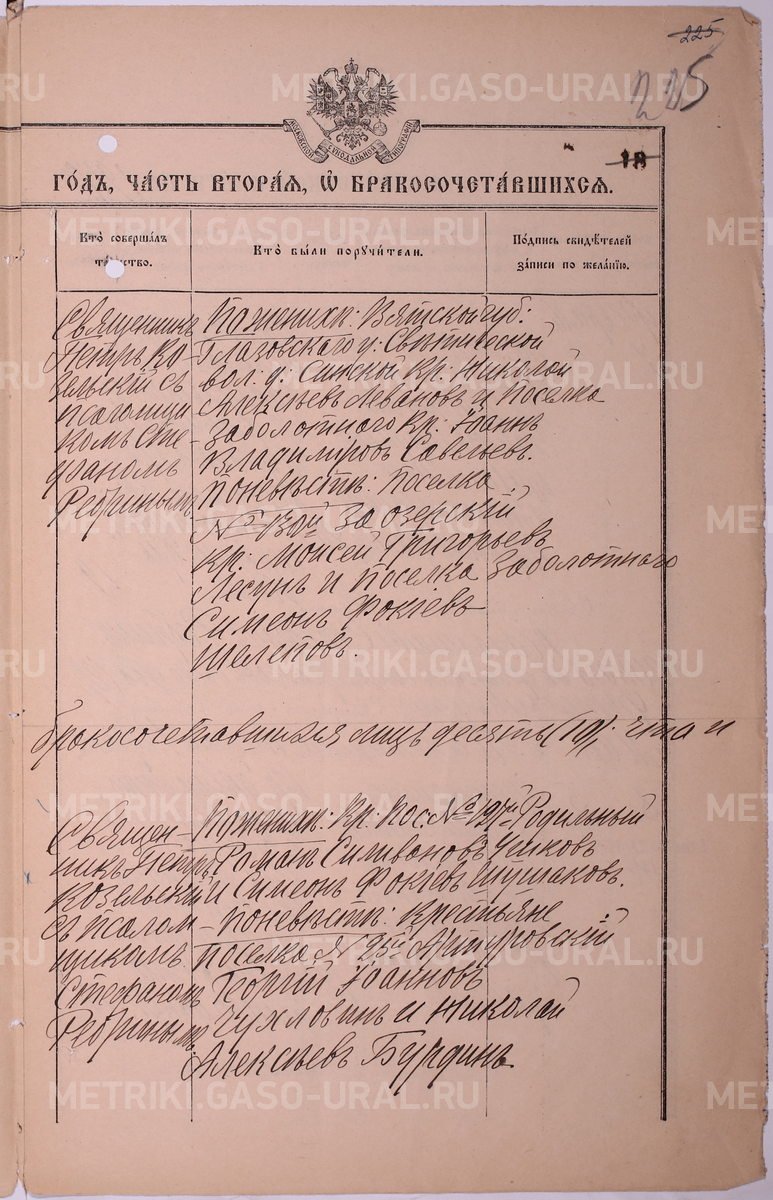 225
225
МОСКОВСКОЙ СѴНОДАЛЬНОЙ ТИПОГРАФІИ
18
ГО́ДЪ, ЧА́СТЬ ВТОРА́Я, Ѽ БРАКОСОЧЕТА́ВШИХСЯ.
Кто̀ соверша́лъ
та́инство.
Кто̀ были поручи́тели.
По́дпись свидѣ́телей
за́писи по жела́нію.
Священникъ
Петръ Ко-
зельскій съ
псаломщи
комъ Сте-
фаномъ
Ребринымъ
По женихѣ: Вятской губ:
Глазовскаго у: Святицкой
вол: д: Синской кр: Николай
Алексѣевъ Левановъ и Поселка
Заболотнаго кр: Іоаннъ
Владиміровъ Савельевъ.
По невѣстѣ: Поселка
№ 130й Заозерскій
кр: Моисей Григорьевъ
Лесунъ и поселка Заболотнаго
Симеонъ Фокіевъ
Шелеповъ.
бракосочетавшихся лицъ десять (10), что и
Священ-
никъ Петръ
Козельскій
съ псалом-
щикомъ
Стефаномъ
Ребринымъ
По женихѣ: Кр: Пос: № 197й Родильный
Романъ Силивановъ Ушковъ
и Симеонъ Фокіевъ Шушаковъ.
По невѣстѣ: Крестьяне
поселка
Георгій Іоанновъ
Чухловинъ и Николай
Алексѣевъ Бурдинъ
METRIKI.GASO-URAL.RU